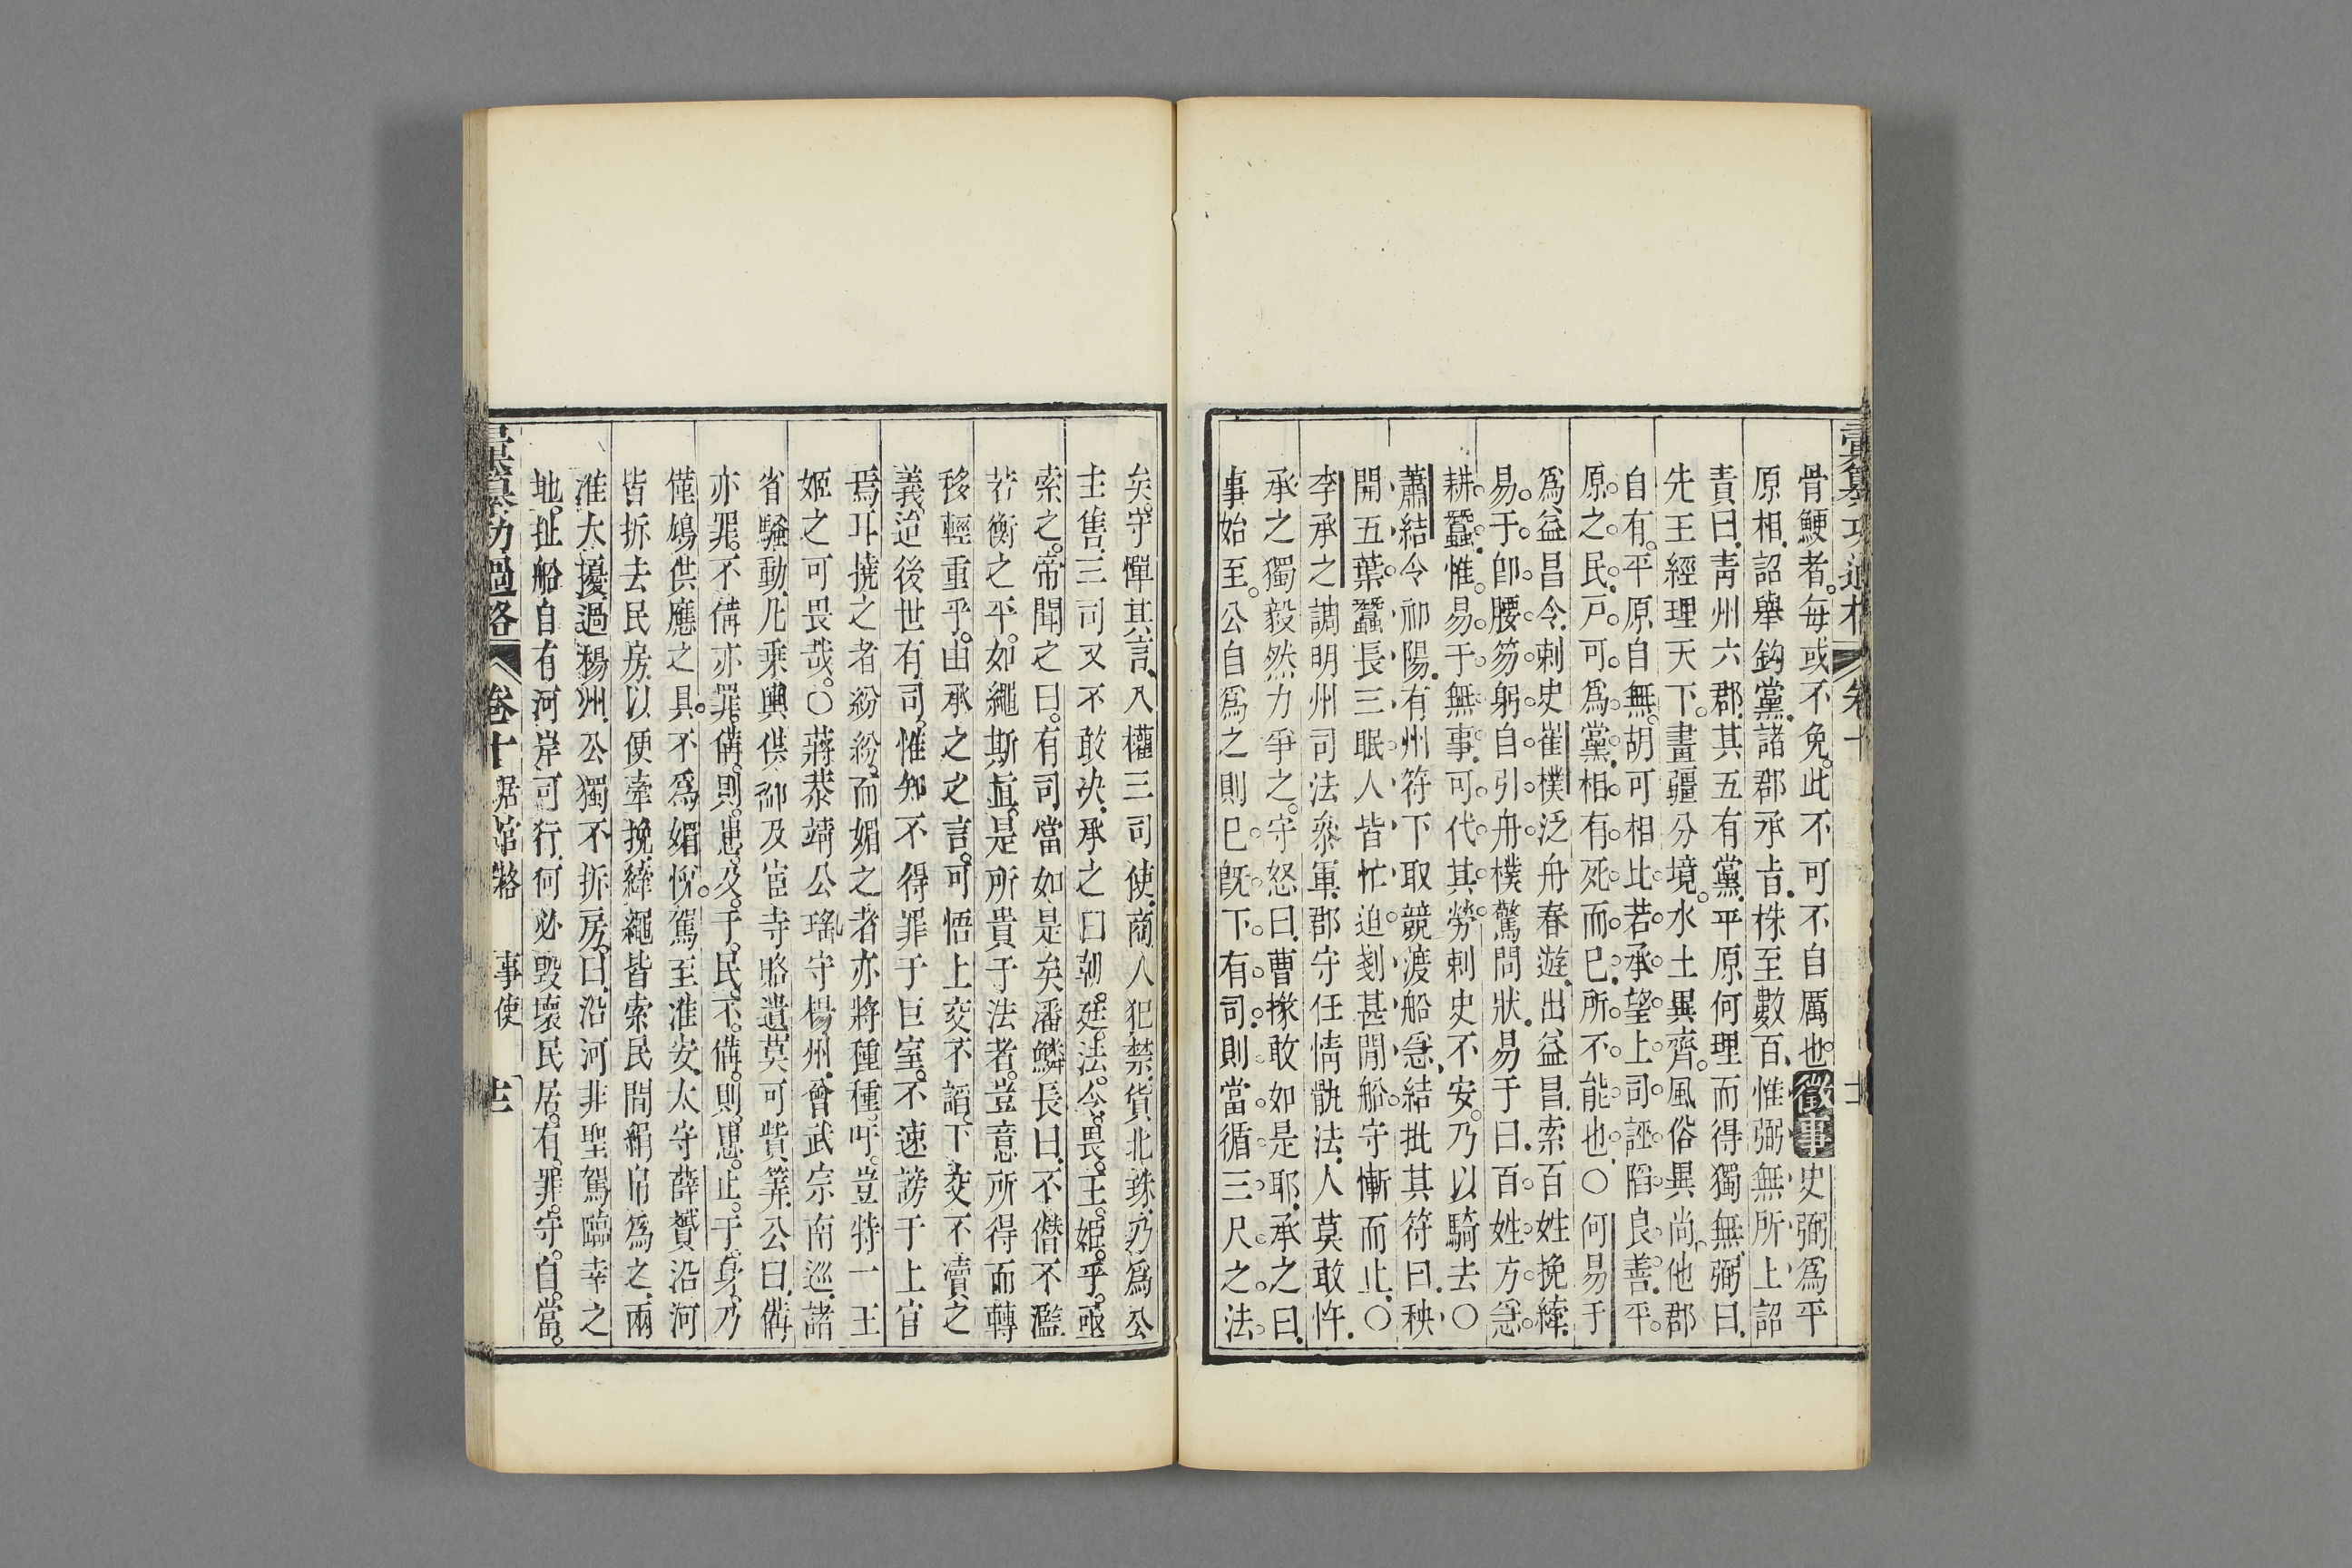 彙纂功過格 卷十
骨鯁者。每或不免。此不可不自厲也。徵事史弼爲平
原相。詔舉鈎黨。諸郡承旨。株至數百。惟弼無所上。詔
責曰。靑州六郡。其五有黨。平原何理而得獨無。弼曰。
先王經理天下。畫疆分境。水土異齊。風俗異尚。他郡
自有。平原自無。胡可相比。若承望上司。誣陷良善。平
原之民。戸可爲黨。相有死而已。所不能也。○何易于
爲益昌令。刺史崔樸泛舟春遊。出益昌。索百姓挽縴。
易于卽腰笏躬自引舟。樸驚問狀。易于曰。百姓方急
耕蠶。惟易于無事。可代其勞。刺史不安。乃以騎去○
蕭結令祁陽。有州符下取競渡船急。結批其符曰。秧
開五葉。蠶長三眠。人皆忙迫。刻甚閒船。守慚而止。○
李承之調明州司法參軍。郡守任情骩法。人莫敢忤。
承之獨毅然力爭之。守怒曰。曹掾敢如是耶。承之曰。
事始至。公自爲之則已。旣下有司。則當循三尺之法
矣。守憚其言。入權三司使。商人犯禁貨北珠。乃爲公
主售。三司又不敢決。承之曰。朝廷法令。畏王姬乎。亟
索之。帝聞之曰。有司當如是矣。潘鱗長曰。不僭不濫。
若衡之平。如繩斯直。是所貴于法者。豈意所得而轉
移輕重乎。由承之之言。可悟上交不謟。下交不瀆之
義。迨後世有司。惟知不得罪于巨室。不速謗于上官
焉耳。撓之者紛紛。而媚之者亦將種種。吁。豈特一王
姬之可畏哉。○蔣恭靖公瑤守楊州。會武宗南巡。諸
省騷動。凡乘輿供御及宦寺賂遺。莫可貲筭。公曰。備
亦罪。不備亦罪。備。則。患。及。于。民。不。備。則。患。止。于。身。乃
僅鳩供應之具。不爲媚悅。駕至淮安。太守薛贇沿河
皆拆去民房。以便牽挽。縴繩皆索民間絹帛爲之。兩
淮大擾。過楊州。公獨不拆房。曰。沿河非聖駕臨幸之
地。扯船自有河岸可行。何必毀壞民居。有罪。守自當。
彙纂功過格 卷十 居官格 事使 十三